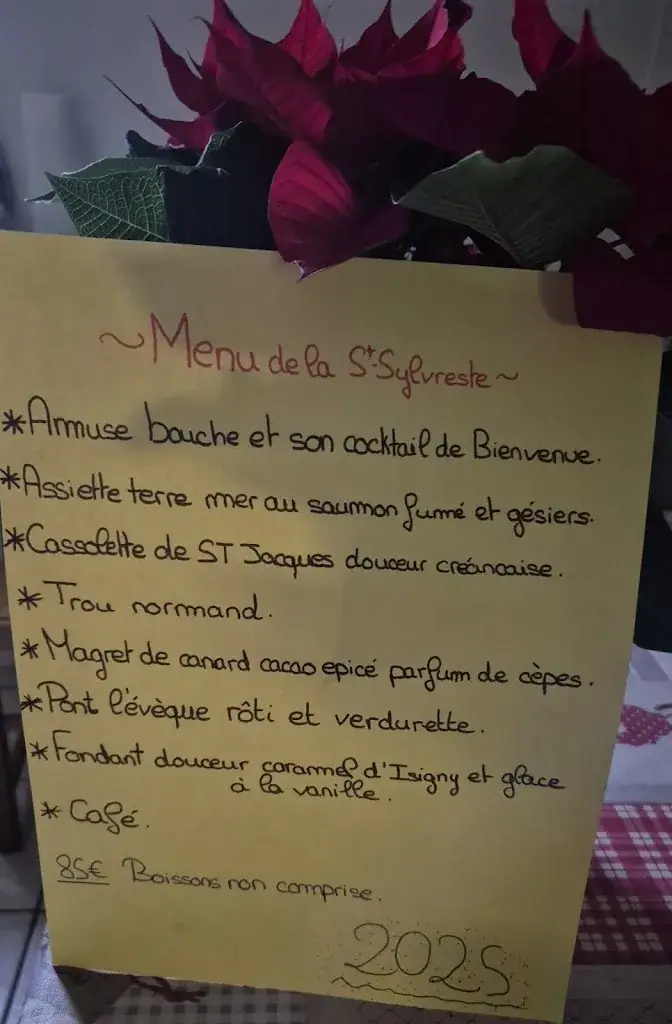 ~Menu de la St-Sylvreste~
*Amuse bouche et son cocktail de Bienvenue.
*Assiette terre mer au saumon fumé et gésiers.
*Cassolette de ST Jacques douceur créancaise.
* Trou normand.
*Magret de canard cacao epicé parfum de cèpes.
*Pont l'évèque rôti et verdurette.
*Fondant douceur caramel d'Isigny et glace
à la vanille.
* Café.
85€ Boissons non comprise.
2025